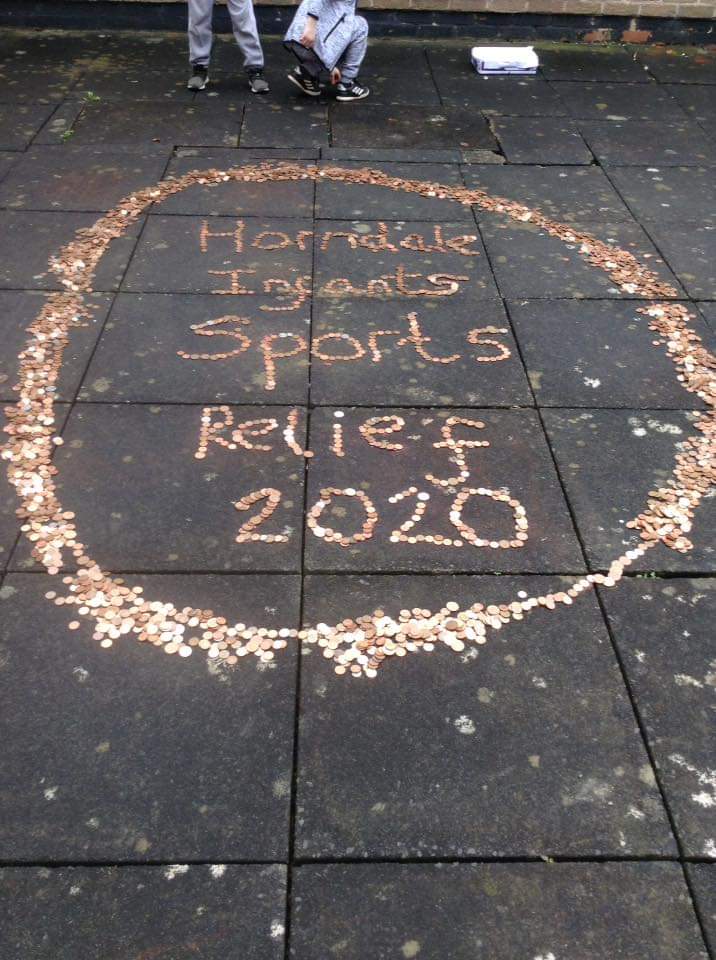 Horndale
Infants
Sports
Relief
2020